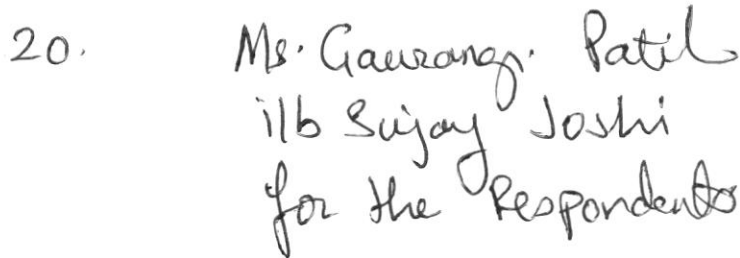 20. Ms. Gaurangi Patil
i/b Sujay Joshi
for the Respondents